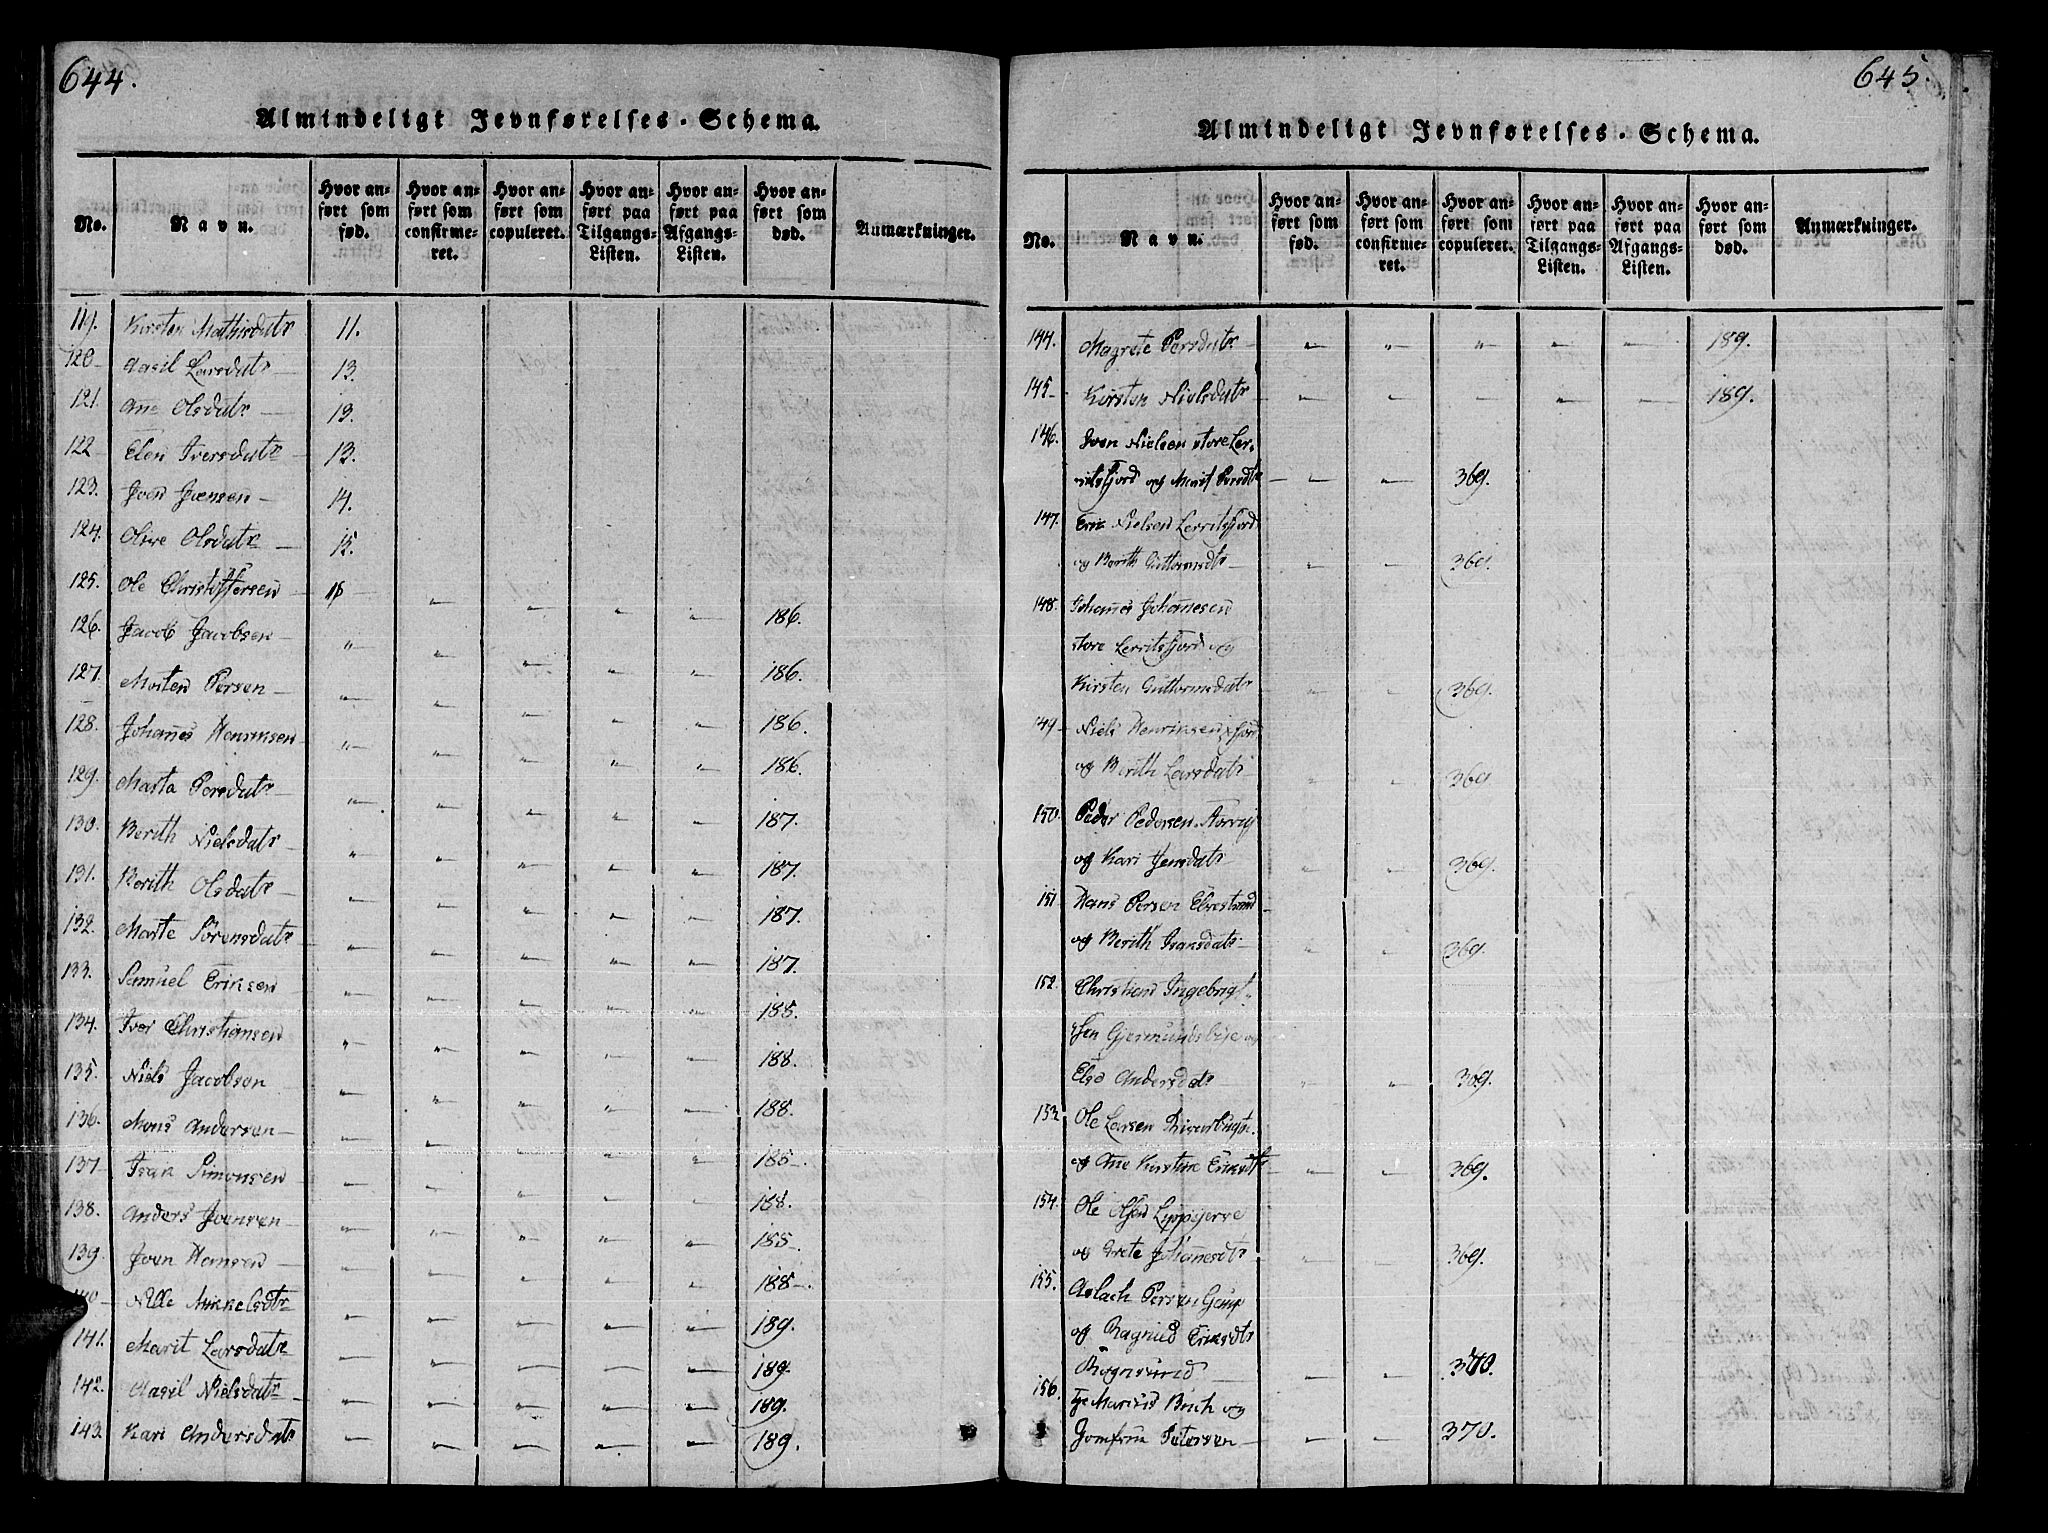 644.
Almindeligt Jevnførelses-Schema.
No. Navn. Hvor anført som fød. Hvor anført som confirmeret. Hvor anført som copuleret. Hvor anført paa Tilgangs-Listen. Hvor anført paa Afgangs-Listen. Hvor anført som død. Anmærkninger.
119. Kirsten Mathisdatr 11.
120 Aasil Larsdatr 13.
121. Ane Olsdatr 13.
122 Elen Iversdatr 13.
123. Joen Joensen 14.
124. Olive Olsdatr 15.
125. Ole Christoffersen 186.
126. Jacob Jacobsen 186.
127. Morten Persen 186.
128. Johanes Henriksen 186.
129. Marta Persdatr 187.
130. Berith Nielsdatr 187.
131. Berith Olsdatr 187.
132. Marte Sørensdatr 187.
133. Samuel Eriksen 188.
134. Iver Christiansen 188.
135. Niels Jacobsen 188.
136. Mons Andersen 188.
137 Isak Simonsen 188.
138. Anders Joensen 188.
139. Joen Hansen 188.
Nille Mikkelsdtr 189.
141. Marit Larsdatr 189.
142. Aasil Nielsdatr 189.
143. Kari Andersdatr 189.
645.
Almindeligt Jevnførelses-Schema.
No. Navn. Hvor anført som fød. Hvor anført som confirmeret. Hvor anført som copuleret. Hvor anført paa Tilgangs-Listen. Hvor anført paa Afgangs-Listen. Hvor anført som død. Anmærkninger.
144. Magrete Persdatr 189.
145 Kirsten Nielsdatr 189.
146. Sven Nielsen store Ler-
ritsfjord og Marit Persdtr 369.
147. Eric Nielsen Lerritsfjord
og Berith Guttormsdtr 369.
148. Johanes Johanesen
store Lerritsfjord og
Kirsten Guttormsdatr 369.
149 Niels Henriksen
og Berith Larsdatr 369
150. Peder Pedersen
og Kari Jensdatr 369.
151 Hans Persen Elvestrand
og Berith Isaksdatr 369.
152. Christian Ingebrigt-
sen og
Else Andersdatr 369.
153 Ole Larsen
og Ane Kirstine Eriksdtr 369.
154. Ole Olsen
og Grete Johanesdtr 369.
155. Aslach Persen
og Ragnild Eriksdtr
Rognsund 370.
156. Marius Buch og
Jomfrue Petersen 370.